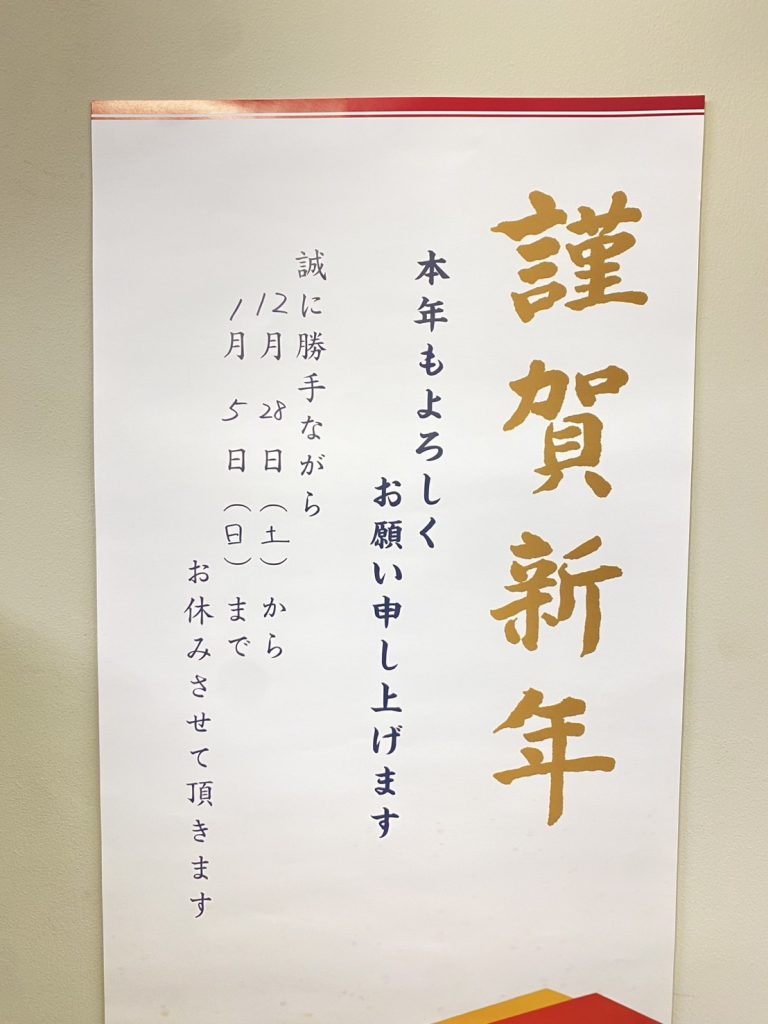 謹賀新年
本年もよろしく
お願い申し上げます
誠に勝手ながら
12月28日（土）から
1月5日（日）まで
お休みさせて頂きます